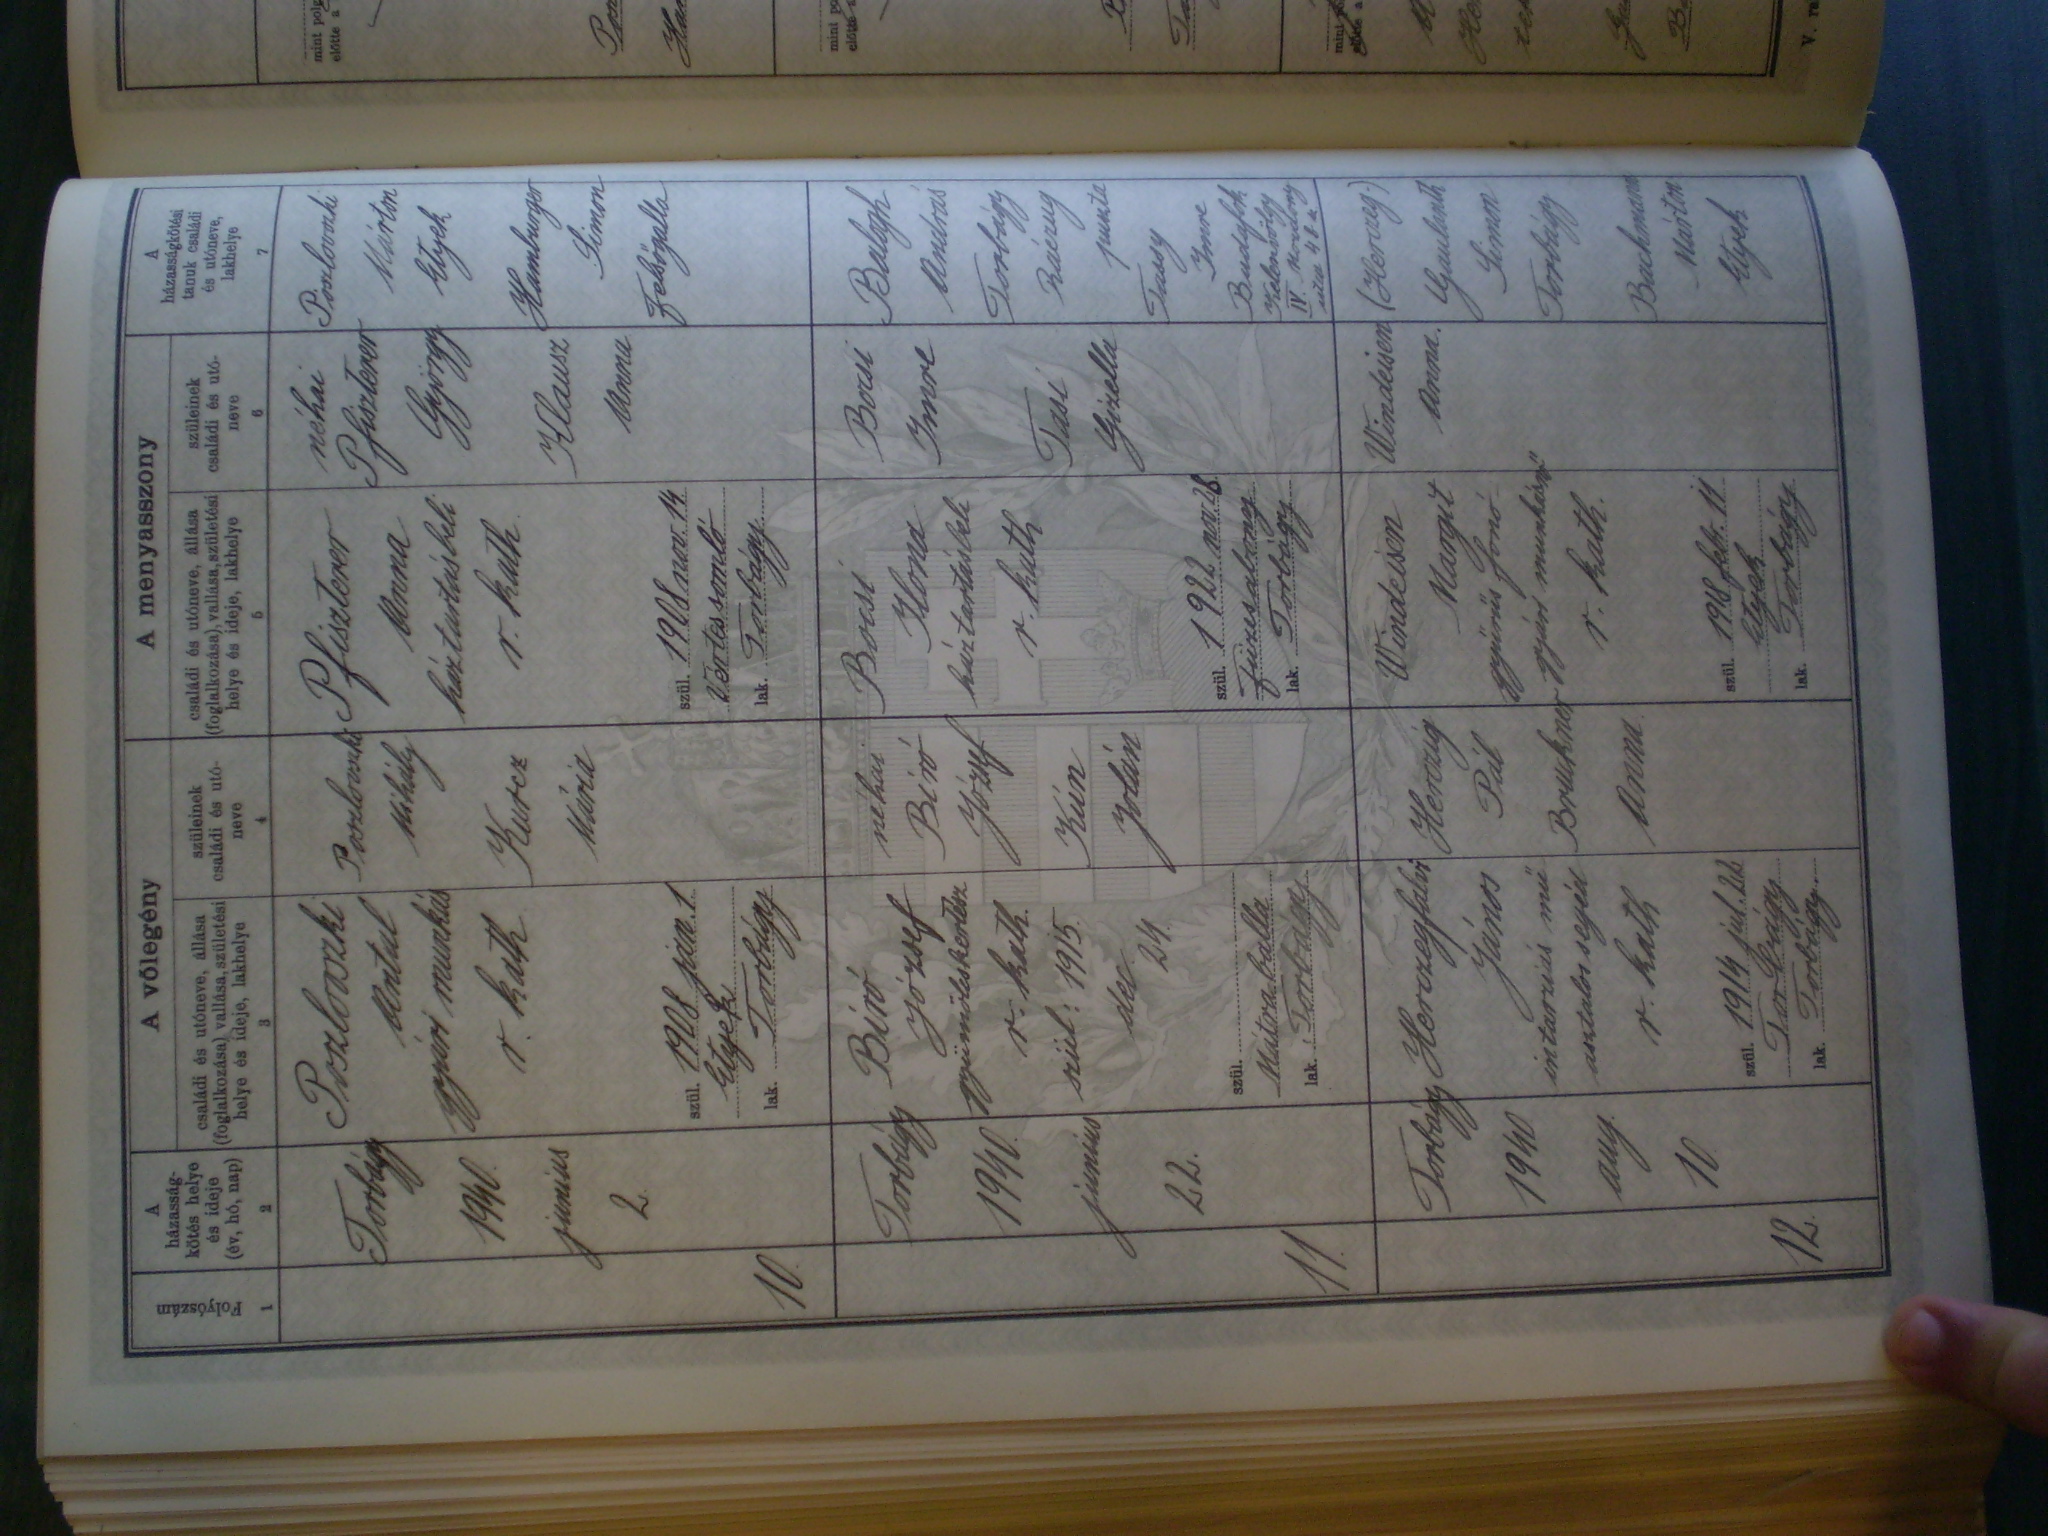 Folyószám
1
A
házasság-
kötés helye
és ideje
(év, hó, nap)
2
A vőlegény
családi és utóneve, állása
(foglalkozása) vallása, születési
helye és ideje, lakhelye
3
szüleinek
családi és utó-
neve
4
A menyasszony
családi és utóneve, állása
(foglalkozása), vallása, születési
helye és ideje, lakhelye
5
szüleinek
családi és utó-
neve
6
A
házasságkötési
tanuk családi
és utóneve,
lakhelye
7
10.
Torbágy
1940.
junius
2.
Poszlovszki
Antal
gyári munkás
r. kath.
szül. 1908 jan. 1.
Etyek
lak. Torbágy
Poszlovszki
Mihály
Kurcz
Mária
Pfiszterer
Anna
háztartásbeli
r. kath.
szül. 1908 nov. 14
Vértessomló
lak. Torbágy
néhai
Pfiszterer
György
Klausz
Anna
Poszlovszki
Márton
Etyek
Hamburger
Simon
Felsőgalla
11.
Torbágy
1940.
junius
22.
Biró
József
gyümölskertész
r. kath.
szül: 1915.
dec 24.
szül.
Mátraballa
lak. Torbágy
néhai
Biró
József
Kún
Zolán
Bocsi
Ilona
háztartásbeli
r. kath
szül. 1922 nov. 28.
Füzesabony
lak. Torbágy
Bocsi
Imre
Tasi
Gizella
Balogh
András
Torbágy
puszta
Tassy
Imre
Budafok
IV.
utca 48 a
12.
Torbágy
1940
aug.
10
Herczegfalvi
János
intarziás mű
asztalos segéd
r. kath
szül. 1914 jul. 26
Torbágy
lak. Torbágy
Herczig
Pál
Bruckner
Anna
Windeisen
Margit
gyűrűs fonó
gyári munkásnő
r. kath.
szül. 1918 febr. 11
Etyek
lak. Torbágy
Windeisen
Anna.
(Herczeg.)
Simon
Torbágy
Bachmann
Márton
Etyek
mint polg
előtte a
mint po
előtte a
V. ra